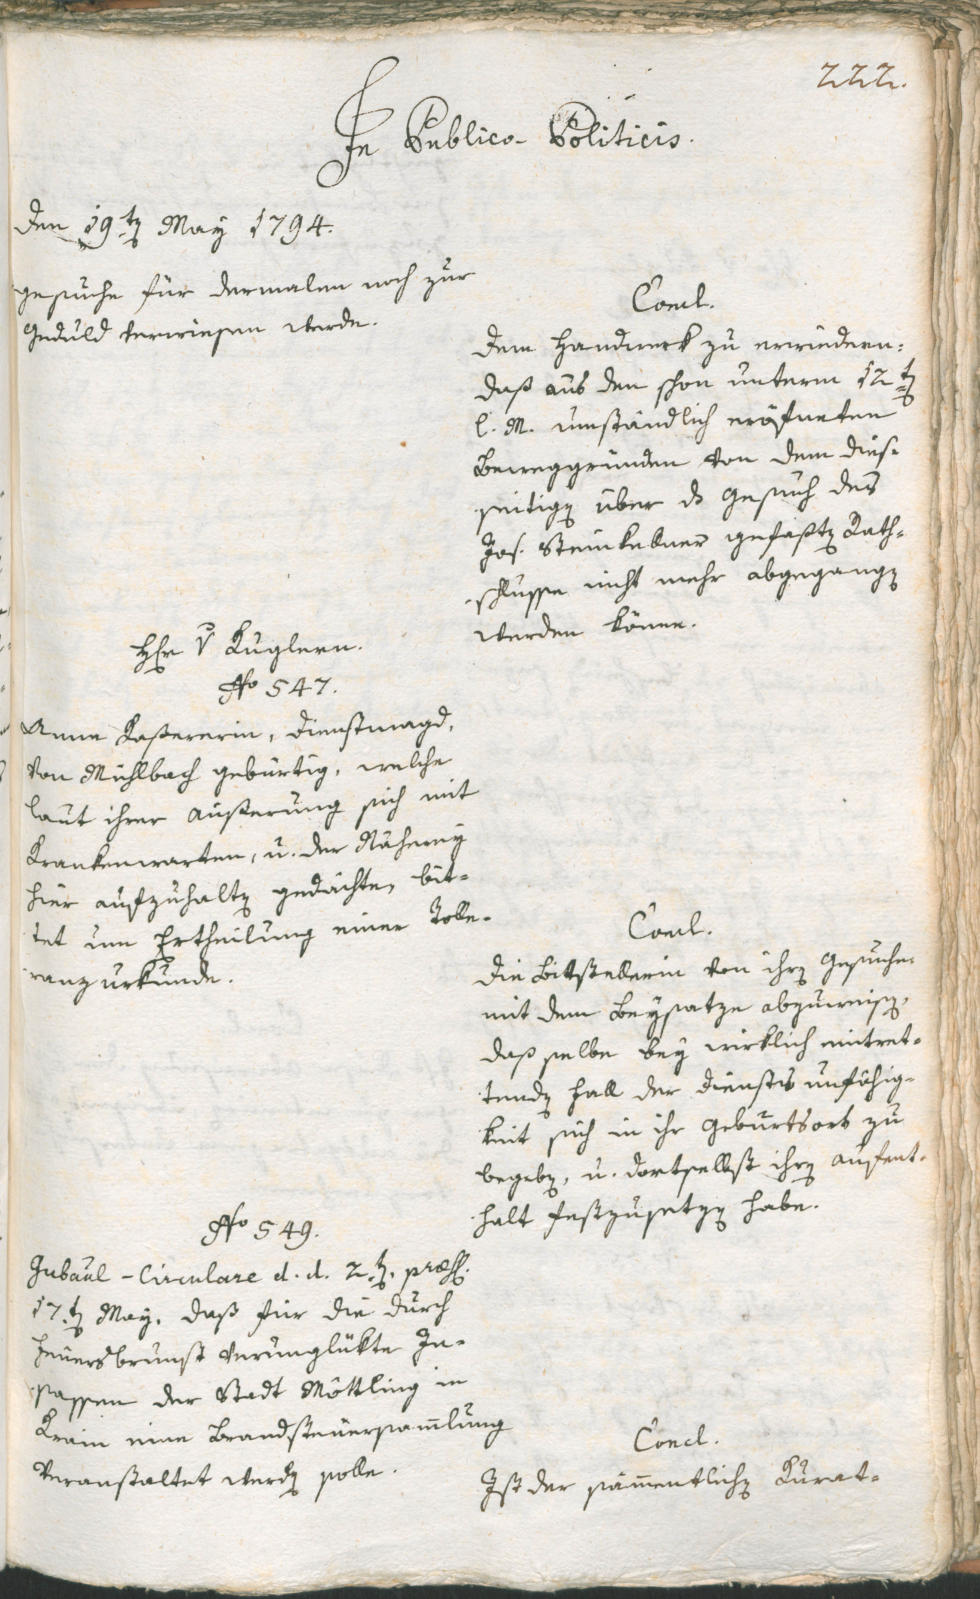 222.
In Publico-Politicis.
Den 19.ten May 1794.
gesuche für dermalen noch zur
Geduld verwiesen werde.
Concl.
Dem Handwerk zu erwiedern:
daß aus den schon unterm 12ten
l. M. umständlich eröfneten
Beweggründen von dem dies-
seitigen über das Gesuch des
Jos. Steinkellner gefaßten Rath-
schlusse nicht mehr abgegangen
werden könne.
Hr v Kuglern.
No 547.
Anna Kaßererin, Dienstmagd,
von Mühlbach gebürtig, welche
laut ihrer Äußerung sich mit
Krankenwarten, u. der Näherey
hier aufzuhalten gedächte, bit-
tet um Ertheilung einer Tolle-
ranzurkunde.
Concl.
Die Bittstellerin von ihrem Gesuche
mit dem Beysatze abzuweisen,
daß selbe bey wirklich eintret-
tenden Fall der Dienstsunfähig-
keit sich in ihr Geburtsort zu
begeben, u. dortselbst ihren Aufent-
halt festzusetzen habe.
No 549.
Gubaul-Circulare d. d. 2.ten, præs.
17.ten May, daß für die durch
Feuersbrunst verunglükte In-
sassen der Stadt Möttling in
Krain eine Brandsteuersam̄lung
veranstaltet werden solle.
Concl.
Ist der säm̄entlichen Kurat-